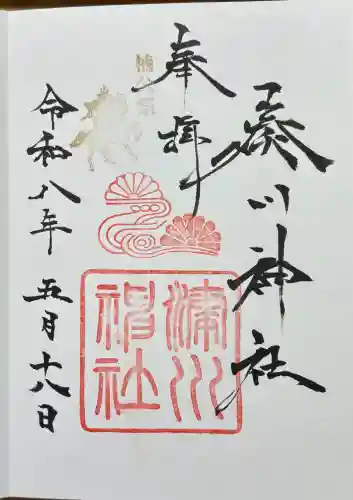 奉拝
湊川神社
令和八年
五月十八日
湊川
神社